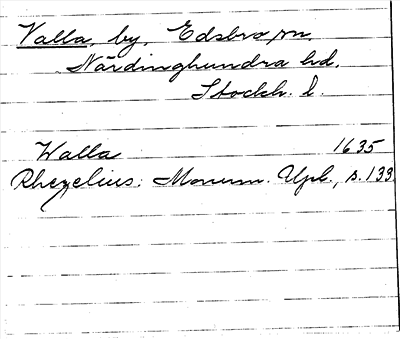 Valla, by, Edsbro sn.
Närdinghundra hd.
Stockh. l.
Walla 1635
Rhezelius: Monum. Upl., s. 133